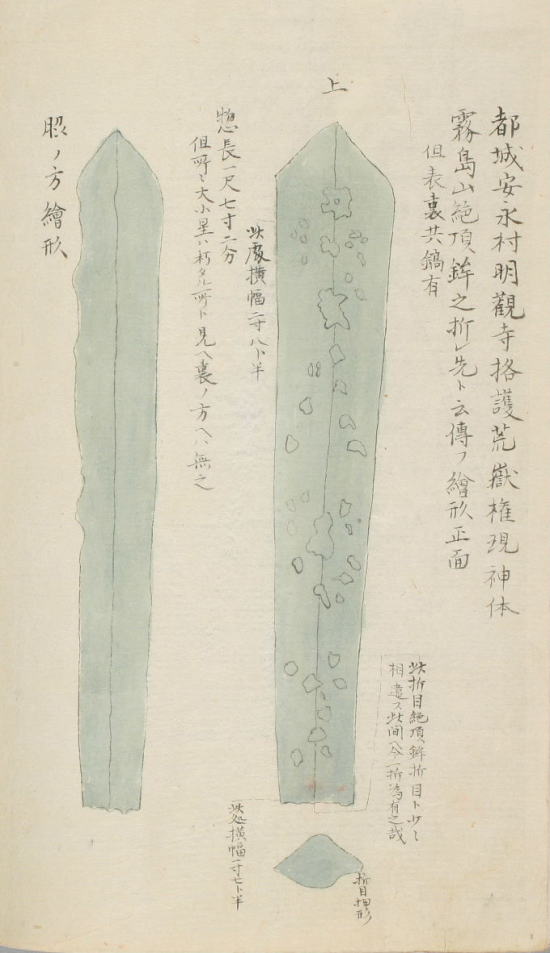 都城安永村明観寺格護荒嶽権現神体
霧島山絶頂鉾之折レ先ト云傳フ繪形正面
但表裏共鎬有
上
此折目絶頂鉾折目ト少〻
相違ス此間今一折為有之哉
折目押形
此處横幅二寸八卜半
惣長一尺七寸二分
但所〻大小星ハ朽タル所ト見ヘ裏ノ方ヘハ無之
此処横幅二寸七卜半
脇ノ方繪形